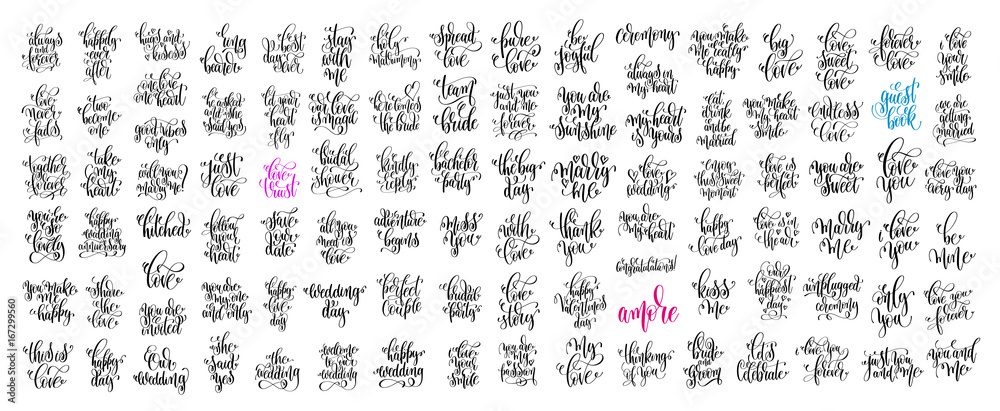 always forever
happily ever after
hugs and kisses
ring bearer
best day ever
stay with me
holy matrimony
spread love
pure love
be joyful
ceremony
you make me really happy
big love
love sweet love
forever love
i love your smile
love never fails
two become one
one love one heart
good vibes only
he asked and she said yes
let your heart fly
our love is magic
here comes the bride
team bride
just you and me forever
you are my sunshine
always in my heart
my heart is yours
eat drink and be married
you make my heart smile
endless love
guest book
we are getting married
together forever
take my heart
will you marry me?
just love
love trust
bridal shower
kindly reply
bachelor party
the big day
marry me
love wedding
enjoy this sweet moment
love is perfect
you are sweet
love you
i love you every day
you're so lovely
happy wedding anniversary
hitched
follow your heart
save our date
all you need is love
adventure begins
miss you
with love
thank you
you are my heart
congratulations!
happy love day
love is in the air
marry me
i love you
be mine
you make me happy
share the love
love
you are invited
you are my one and only
happy love day
wedding day
perfect couple
bridal party
love story
happy Valentine's day
amore
kiss me
our happiest day
unplugged ceremony
only you
love you forever
this is love
happy day
our wedding
she said yes
the wedding
welcome to our wedding
happy wedding
love your smile
you are my passion
my love
thinking of you
bride and groom
let's celebrate
i love you forever
just you and me
you and me
Adobe Stock | #167299560